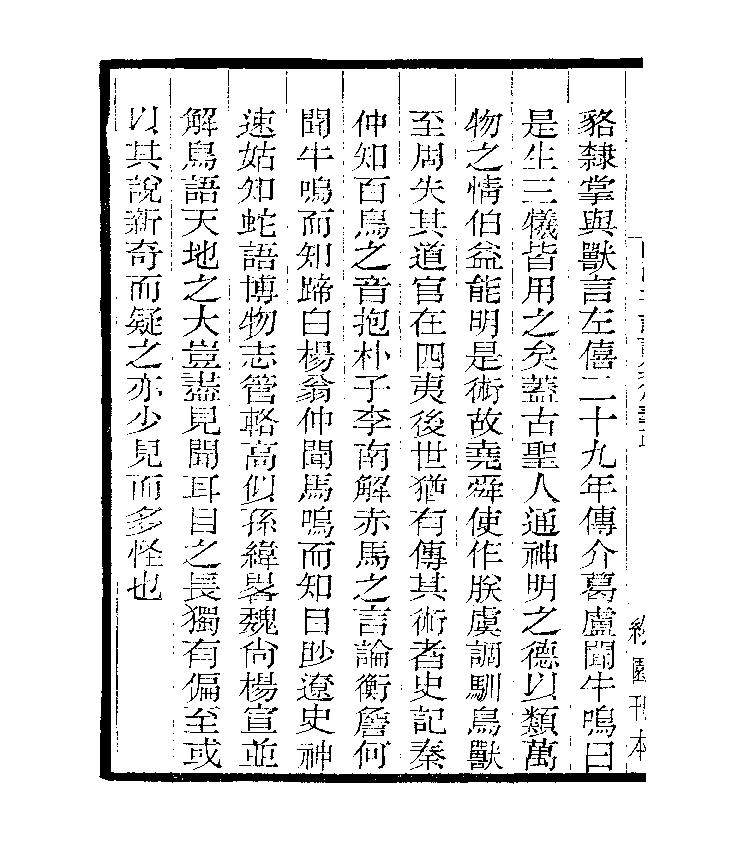 貉隸掌與獸言左僖二十九年傳介葛盧聞牛鳴曰
是生三犧皆用之矣蓋古聖人通神明之德以類萬
物之情伯益能明是術故堯舜使作朕虞調馴鳥獸
至周失其道官在四夷後世猶有傳其術者史記秦
仲知百鳥之音抱朴子李南解赤馬之言論衡詹何
聞牛鳴而知蹄白楊翁仲聞馬鳴而知目眇遼史神
速姑知蛇語博物志管輅高似孫緯畧魏尙楊宣並
解鳥語天地之大豈盡見聞耳目之長獨有偏至或
以其說新奇而疑之亦少見而多怪也
園刊本